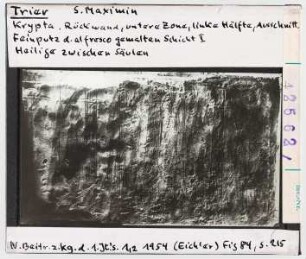 Trier S. Maximin
Krypta, Rückwand, untere Zone, linke Hälfte, Ausschnitt
Feinputz d. alfresco gemalten Schicht I
Heilige zwischen Säulen
12562/
N. Beitr. z. Kg. d. 1. Jt's. 1,2 1954 (Eichler) Fig 84, S. 215